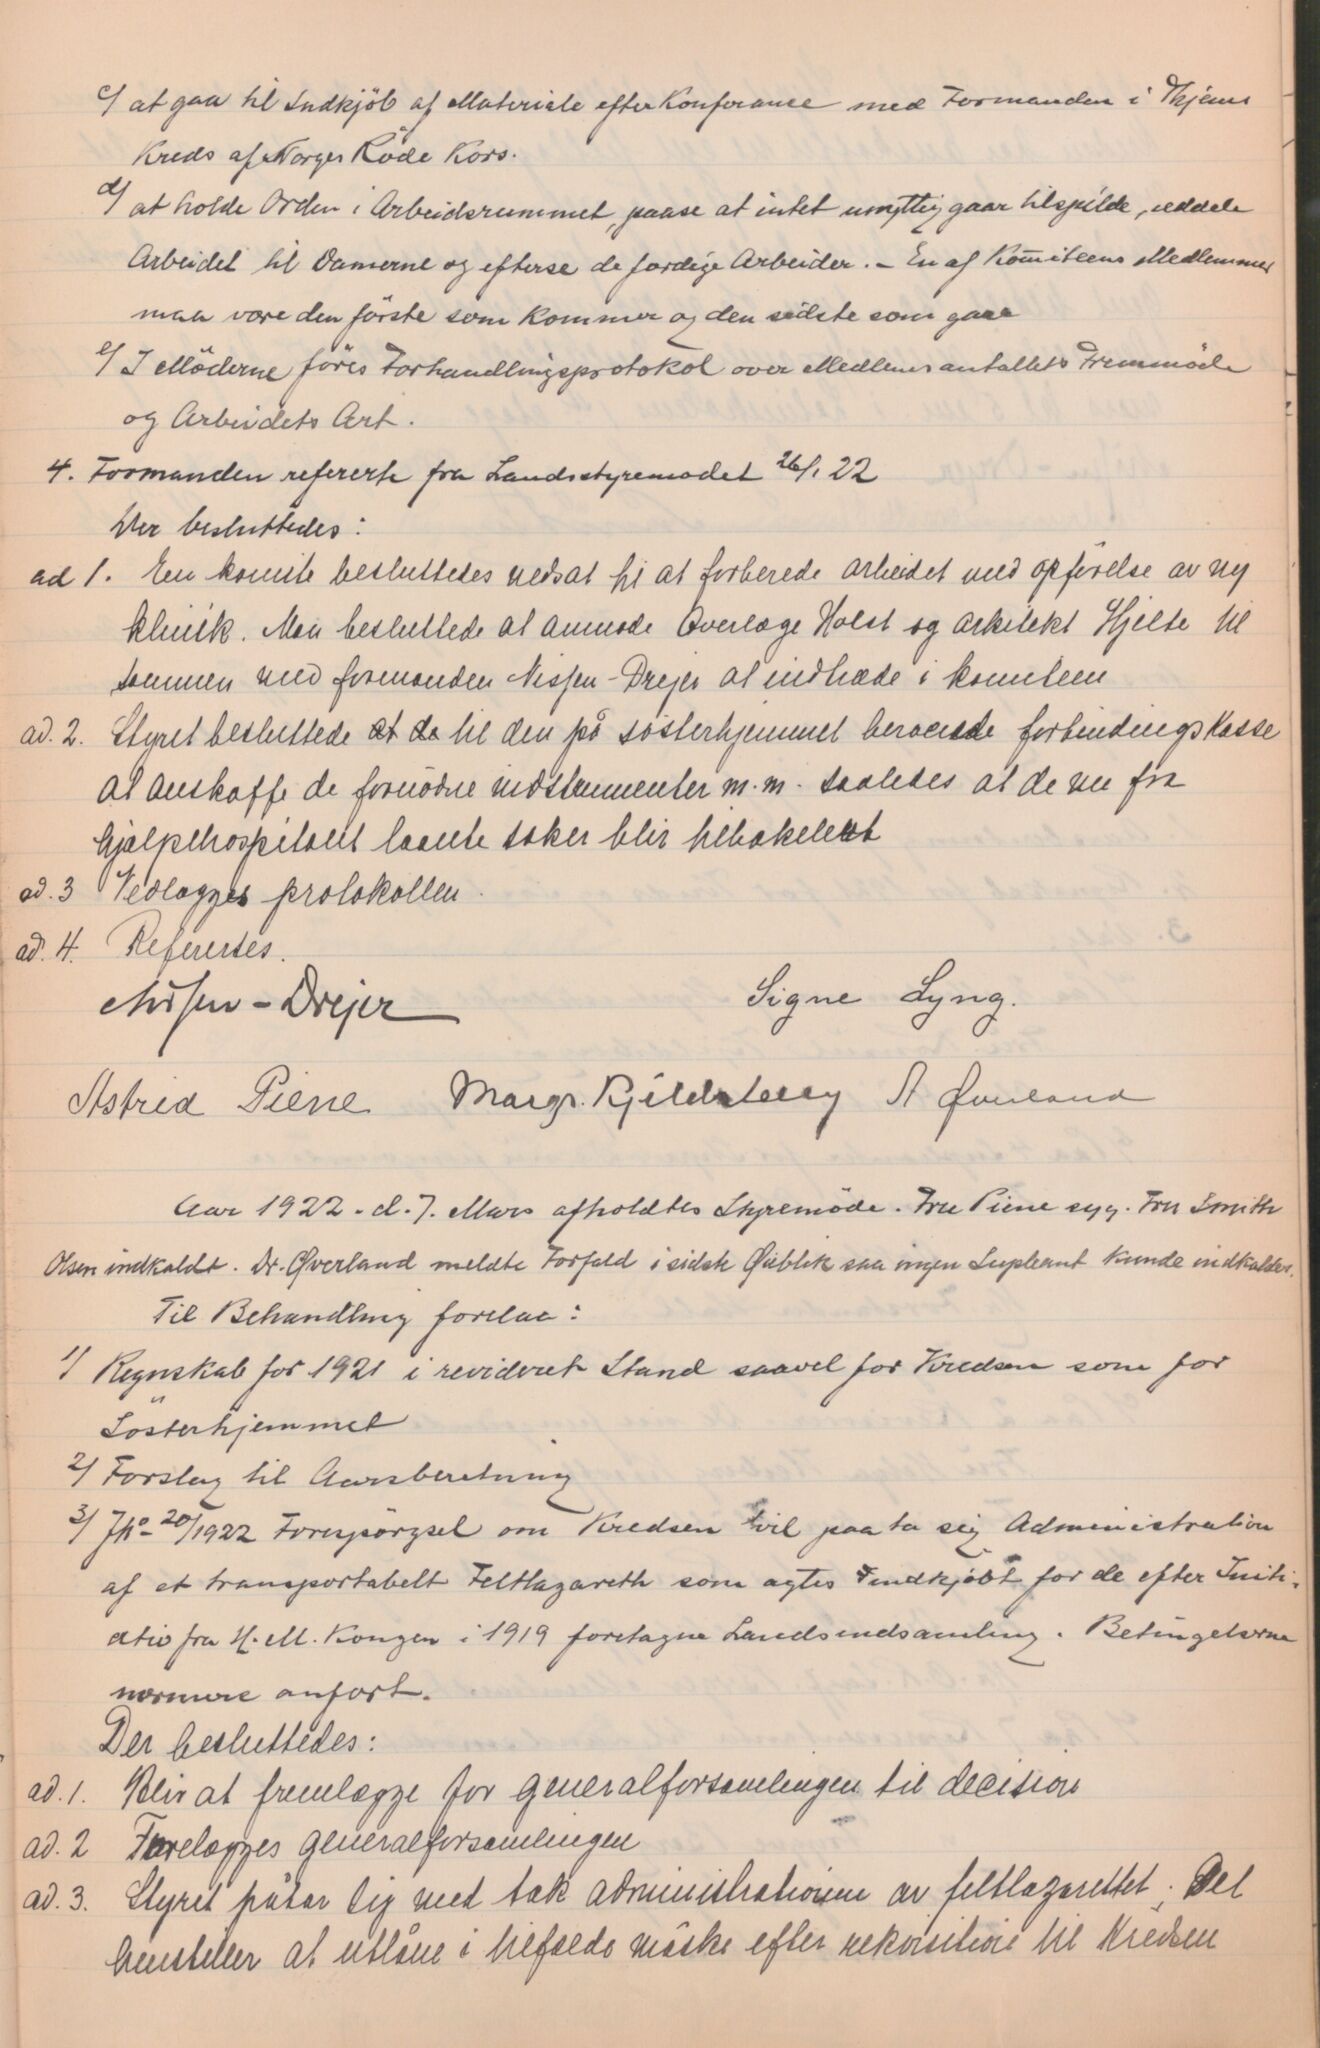 c/ at gaa til Indkjöb af Materiale efter Konferance med Formanden i Thjems
Kreds af Norges Röde Kors.
d/ at holde Orden i Arbeidsrummet, paase at intet unyttig gaar tilspilde, uddele
Arbeidet til Damerne og efterse de færdige Arbeider. – En af Komiteens Medlemmer
maa være den förste som kommer og den sidste som gaar
e/ I Möderne föres Forhandlingsprotokol over Medlemsantallets Fremmöde
og Arbeidets Art.
4. Formanden refererte fra Landsstyremødet 26/1 22
Der besluttedes:
ad 1. En komite besluttedes nedsat til at forberede arbeidet med opförelse av ny
klinik. Man besluttede at anmode Overlæge Holst og arkitekt Hjelte til
sammen med formanden Nissen-Drejer at indtræde i komiteen
ad. 2. Styret besluttede at de til den på søsterhjemmet beroende forbindingskasse
at anskaffe de fornødne instrumenter m.m. saaledes at de nu fra
hjælpehospitalet laante saker blir tilbakelevert
ad. 3 Vedlægges protokollen.
ad. 4. Referertes.
Nissen-Drejer Signe Lyng.
Astrid Piene Margr. Kjeldsberg A Øverland
Aar 1922 - d. 7. Mars afholdtes Styremöde. Fru Piene syg. Fru Smith
Olsen indkaldt. Dr. Øverland meldte Forfald i sidste Øieblik saa ingen Supleant kunde indkaldes.
Til Behandling forelaa:
1/ Regnskab for 1921 i revideret Stand saavel for Kredsen som for
Søsterhjemmet
2/ Forslag til Aarsberetning
3/ 20/1922 Forespörgsel om Kredsen vil paata sig Administration
af et transportabelt Feltlazareth som agtes indkjöbt for de efter Initi-
ativ fra H.M. Kongen i 1919 foretagne Landsindsamling. Betingelserne
nærmere anført.
Der besluttedes:
ad. 1. Blir at fremlægge for generalforsamlingen til decision
ad. 2 Forelægges generalforsamlingen
ad. 3. Styret påtar sig med tak administrationen av feltlazarettet. Det
henstiller at utlåne i tilfælde måske efter rekvisition til Kredsen